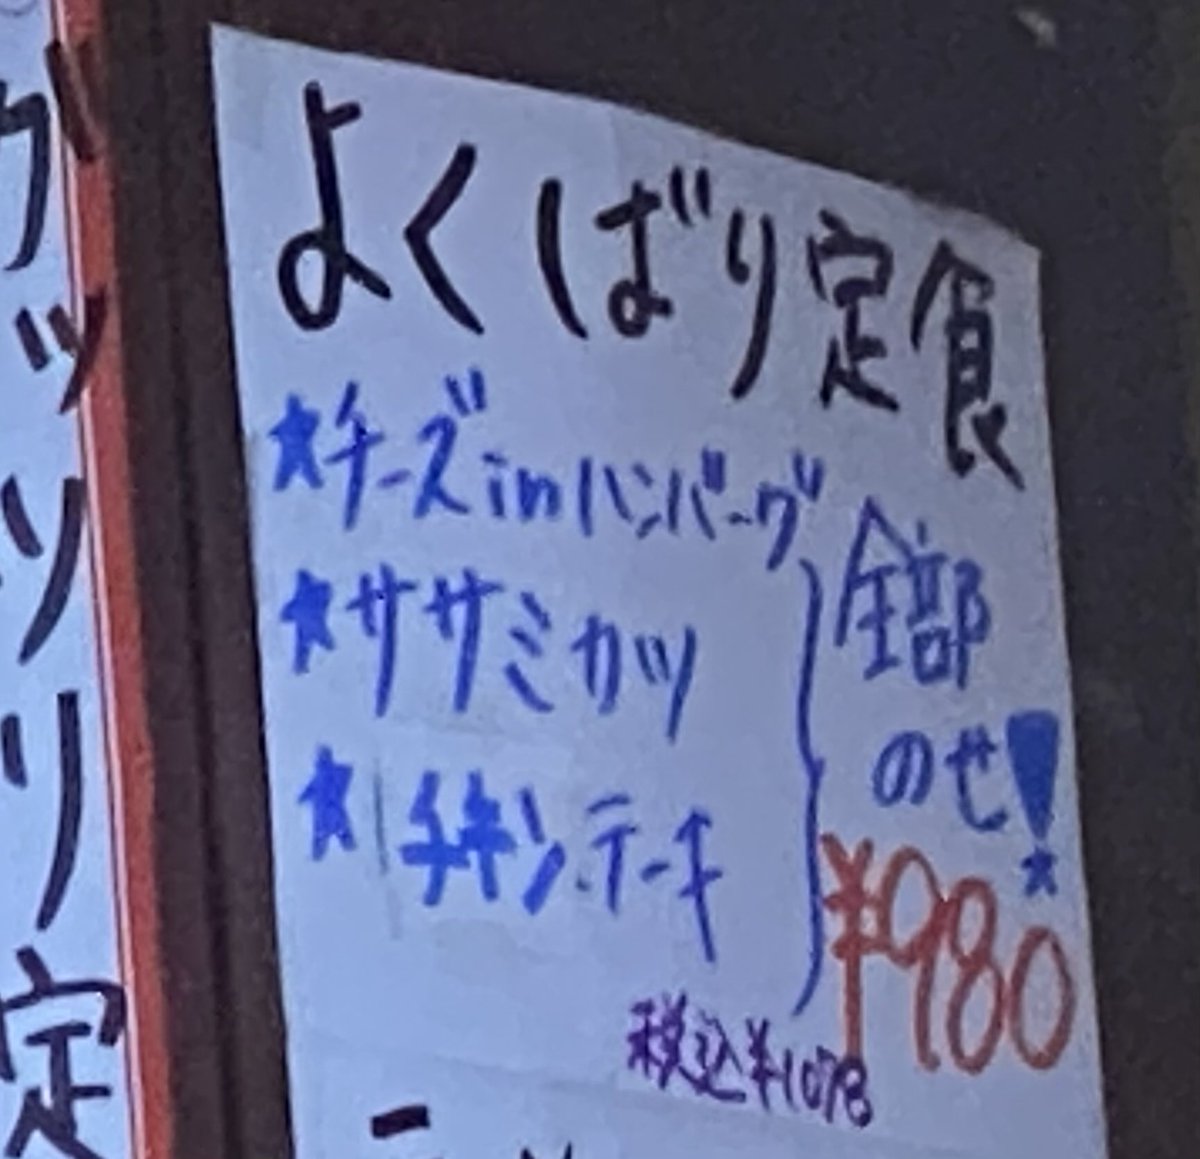 よくばり定食
★チーズinハンバーグ
★ササミカツ
★チキンテーキ
全部
のせ!
¥980
税込¥1078
ガッツリ定